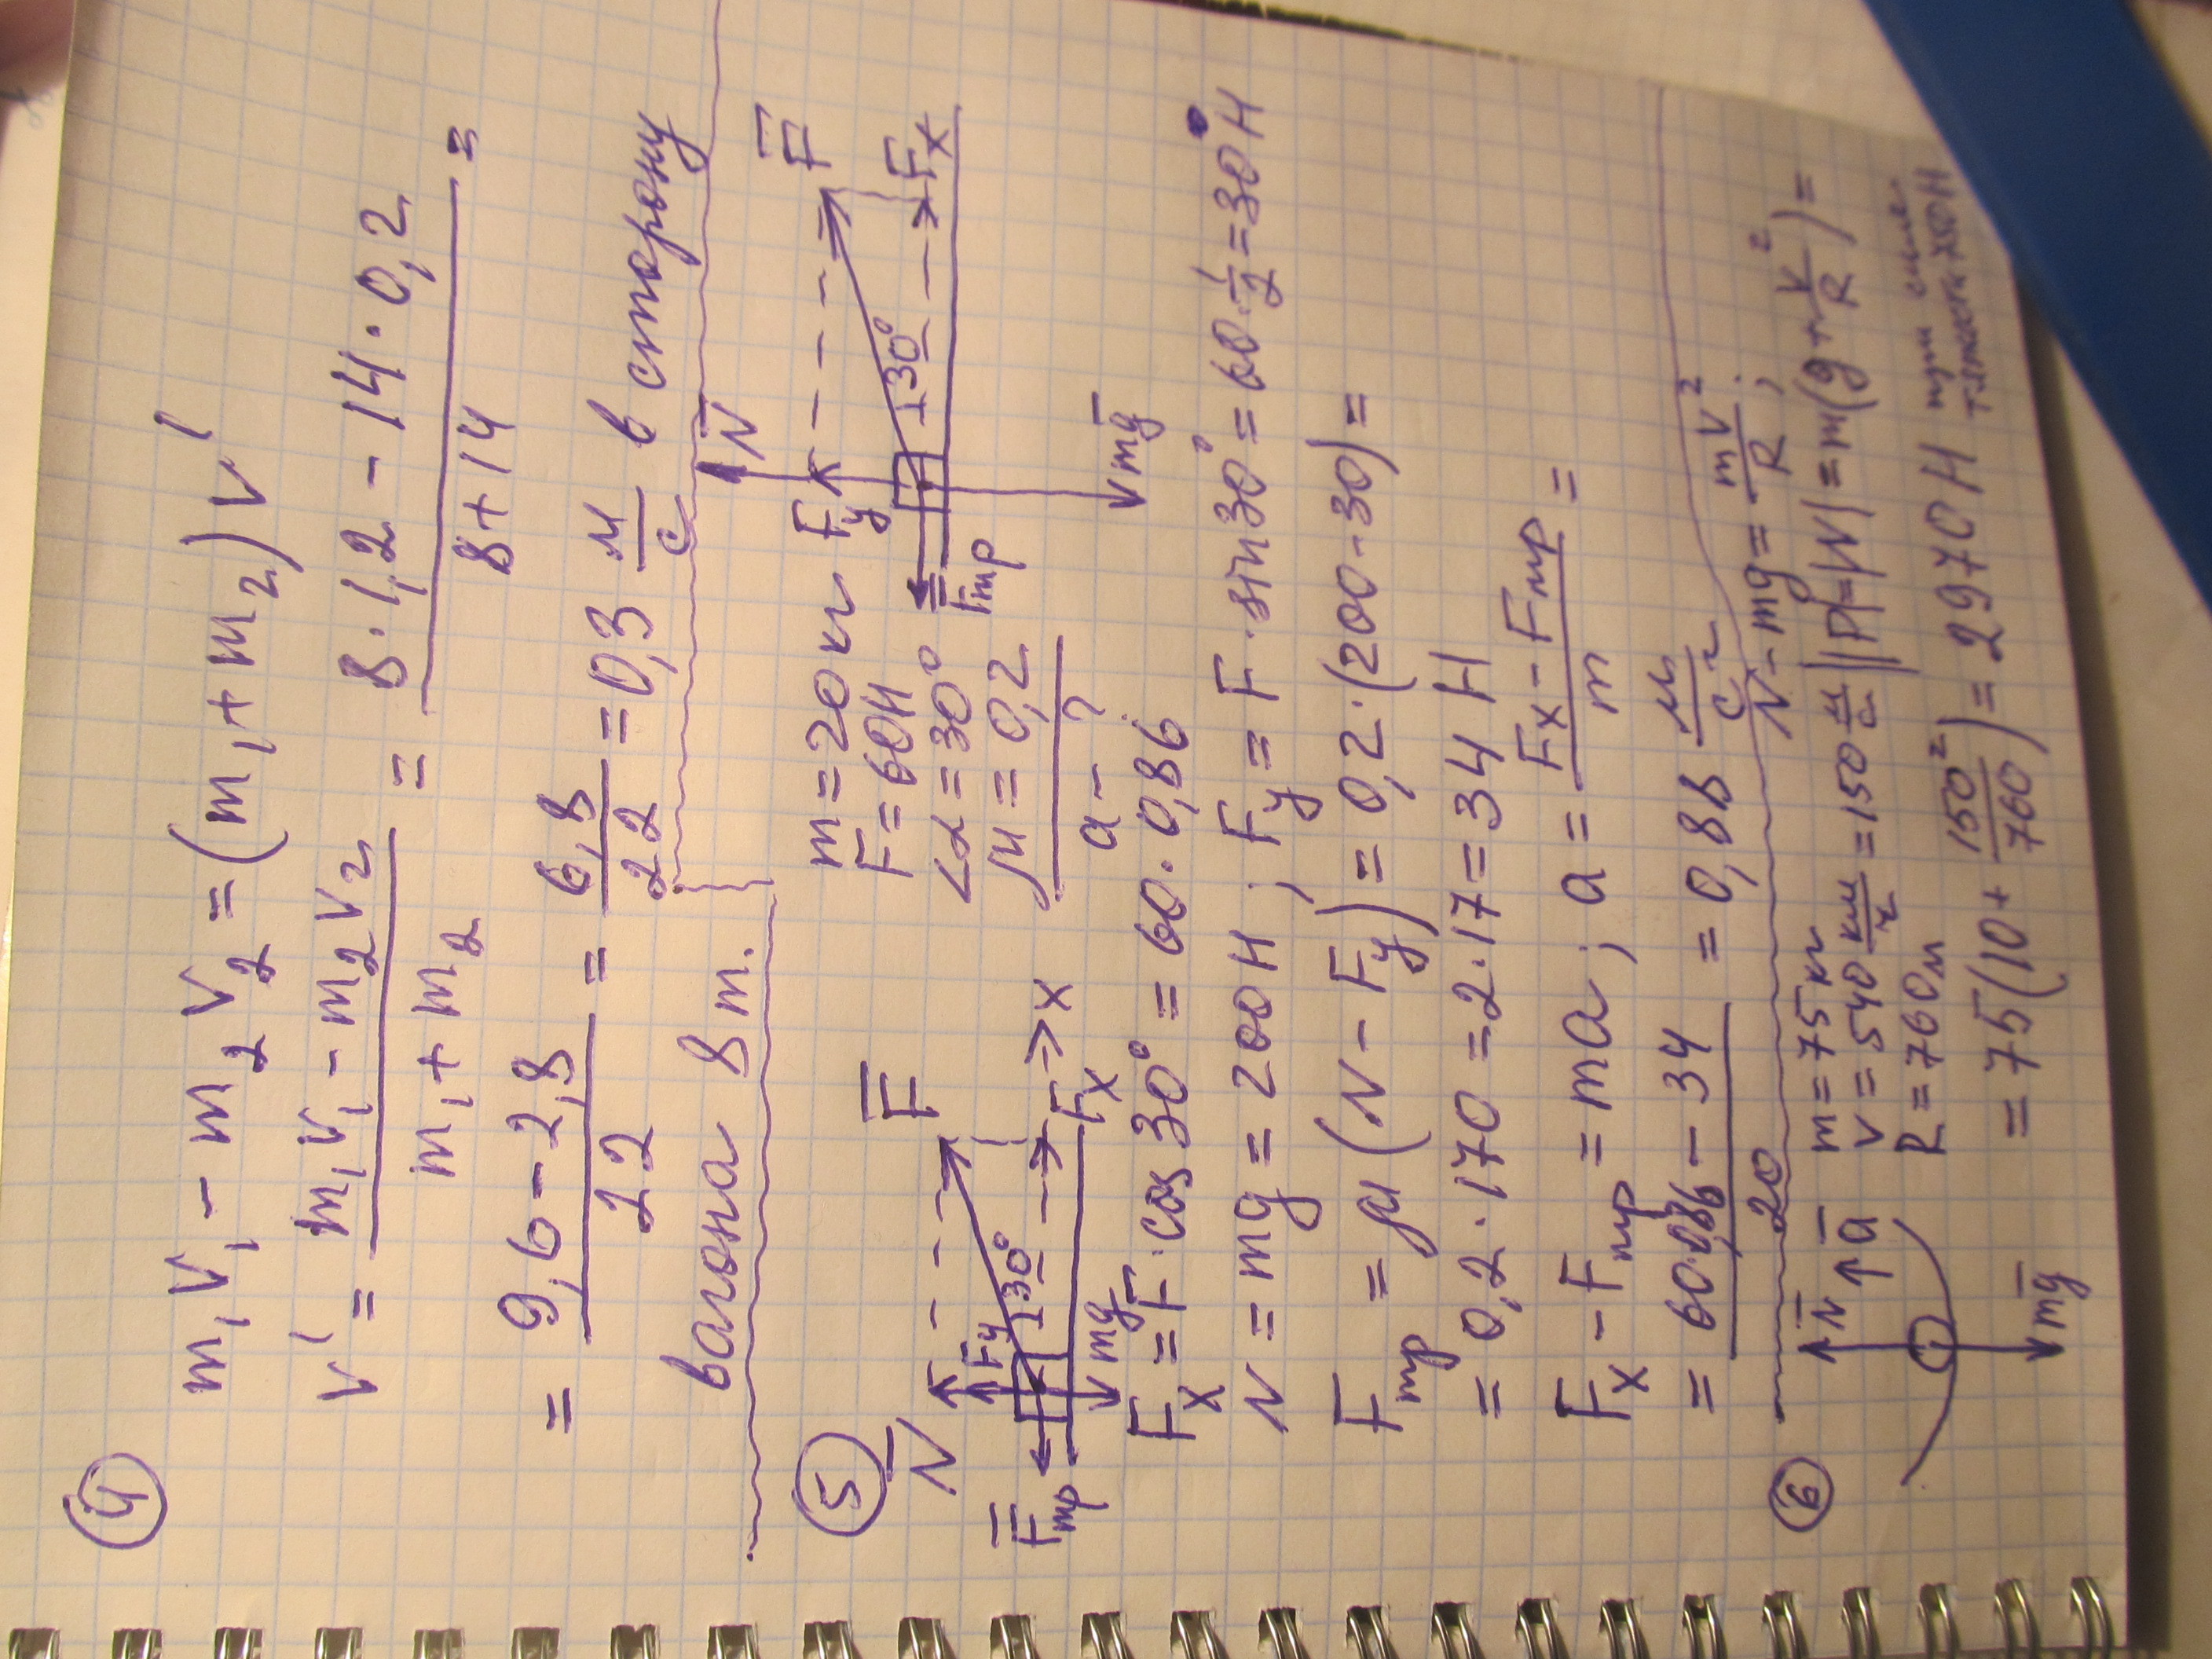 ④ m₁V₁ - m₂V₂ = (m₁ + m₂)V'
V' = (m₁V₁ - m₂V₂)/(m₁ + m₂) = (8·1,2 - 14·0,2)/(8 + 14) =
= (9,6 - 2,8)/22 = 6,8/22 = 0,3 м/с в сторону
вагона 8 т.
⑤ m = 20 кг
F = 60H
∠α = 30°
μ = 0,2
a - ?
N̅ F̅ Fy 30° Fx → x F̅тр mg
N̅ F̅ Fy 30° Fx F̅тр mg̅
Fx = F·cos 30° = 60·0,86
N = mg = 200H ; Fy = F·sin 30° = 60·1/2 = 30H
Fтр = μ(N - Fy) = 0,2·(200-30) =
= 0,2·170 = 2·17 = 34 H
Fx - Fтр = ma ; a = (Fx - Fтр)/m =
= (60·0,86 - 34)/20 = 0,88 м/с²
⑥ N̅ a̅ mg̅
m = 75 кг
V = 540 км/ч = 150 м/с
R = 760 м
N - mg = mV²/R ;
|P| = |N| = m(g + V²/R) =
= 75(10 + 150²/760) = 2970 H при силе
тяжести